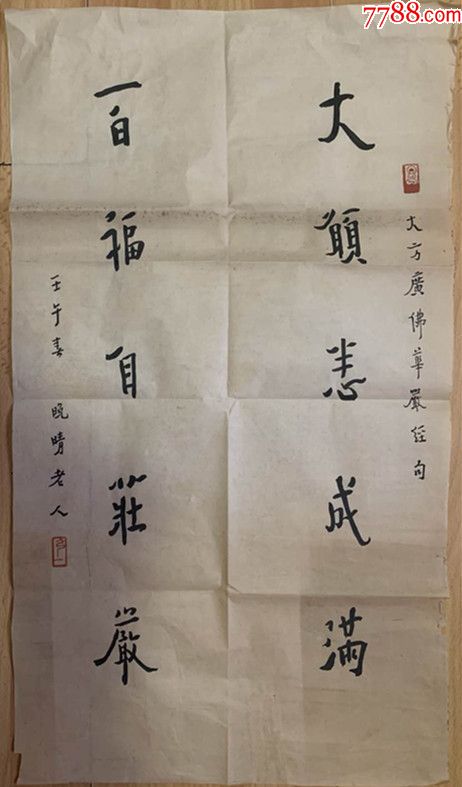 7788.com
大方廣佛華嚴經句
大願悉成滿
百福自莊嚴
壬午春 晚晴老人